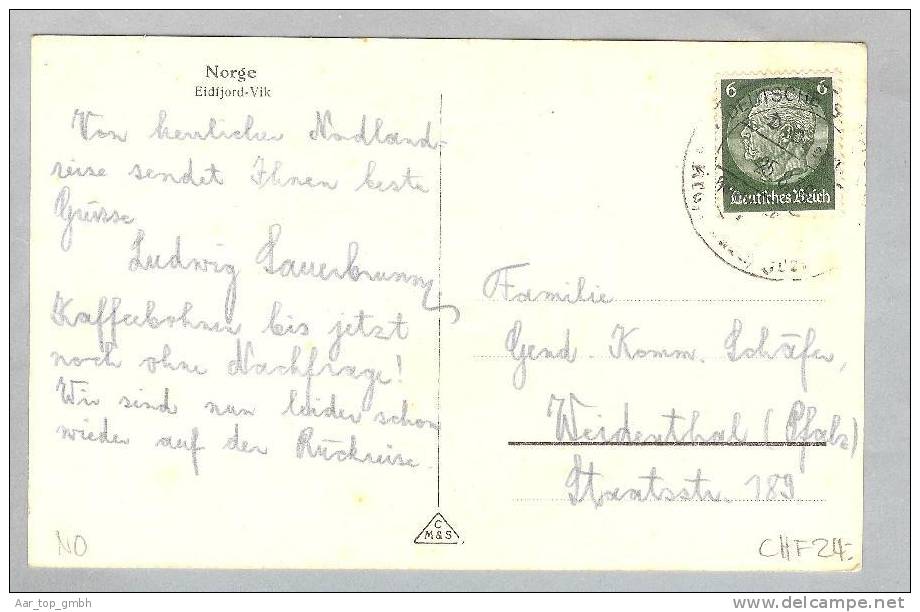 Norge
Eidfjord-Vik
Von herrlicher Nordland-
reise sendet Ihnen beste
Grüsse
Ludwig Sauerbrunn
Kaffeebohnen bis jetzt
noch ohne Nachfrage!
Wir sind nun leider schon
wieder auf der Rückreise.
C
M&S
6 6
Deutsches Reich
DEUTSCHE S
Familie
Gend. Komm. Schäfer,
Weidenthal (Pfalz)
Staatsstr. 189
NO
CHF 24.-
Aar_top_gmbh
www.delcampe.net